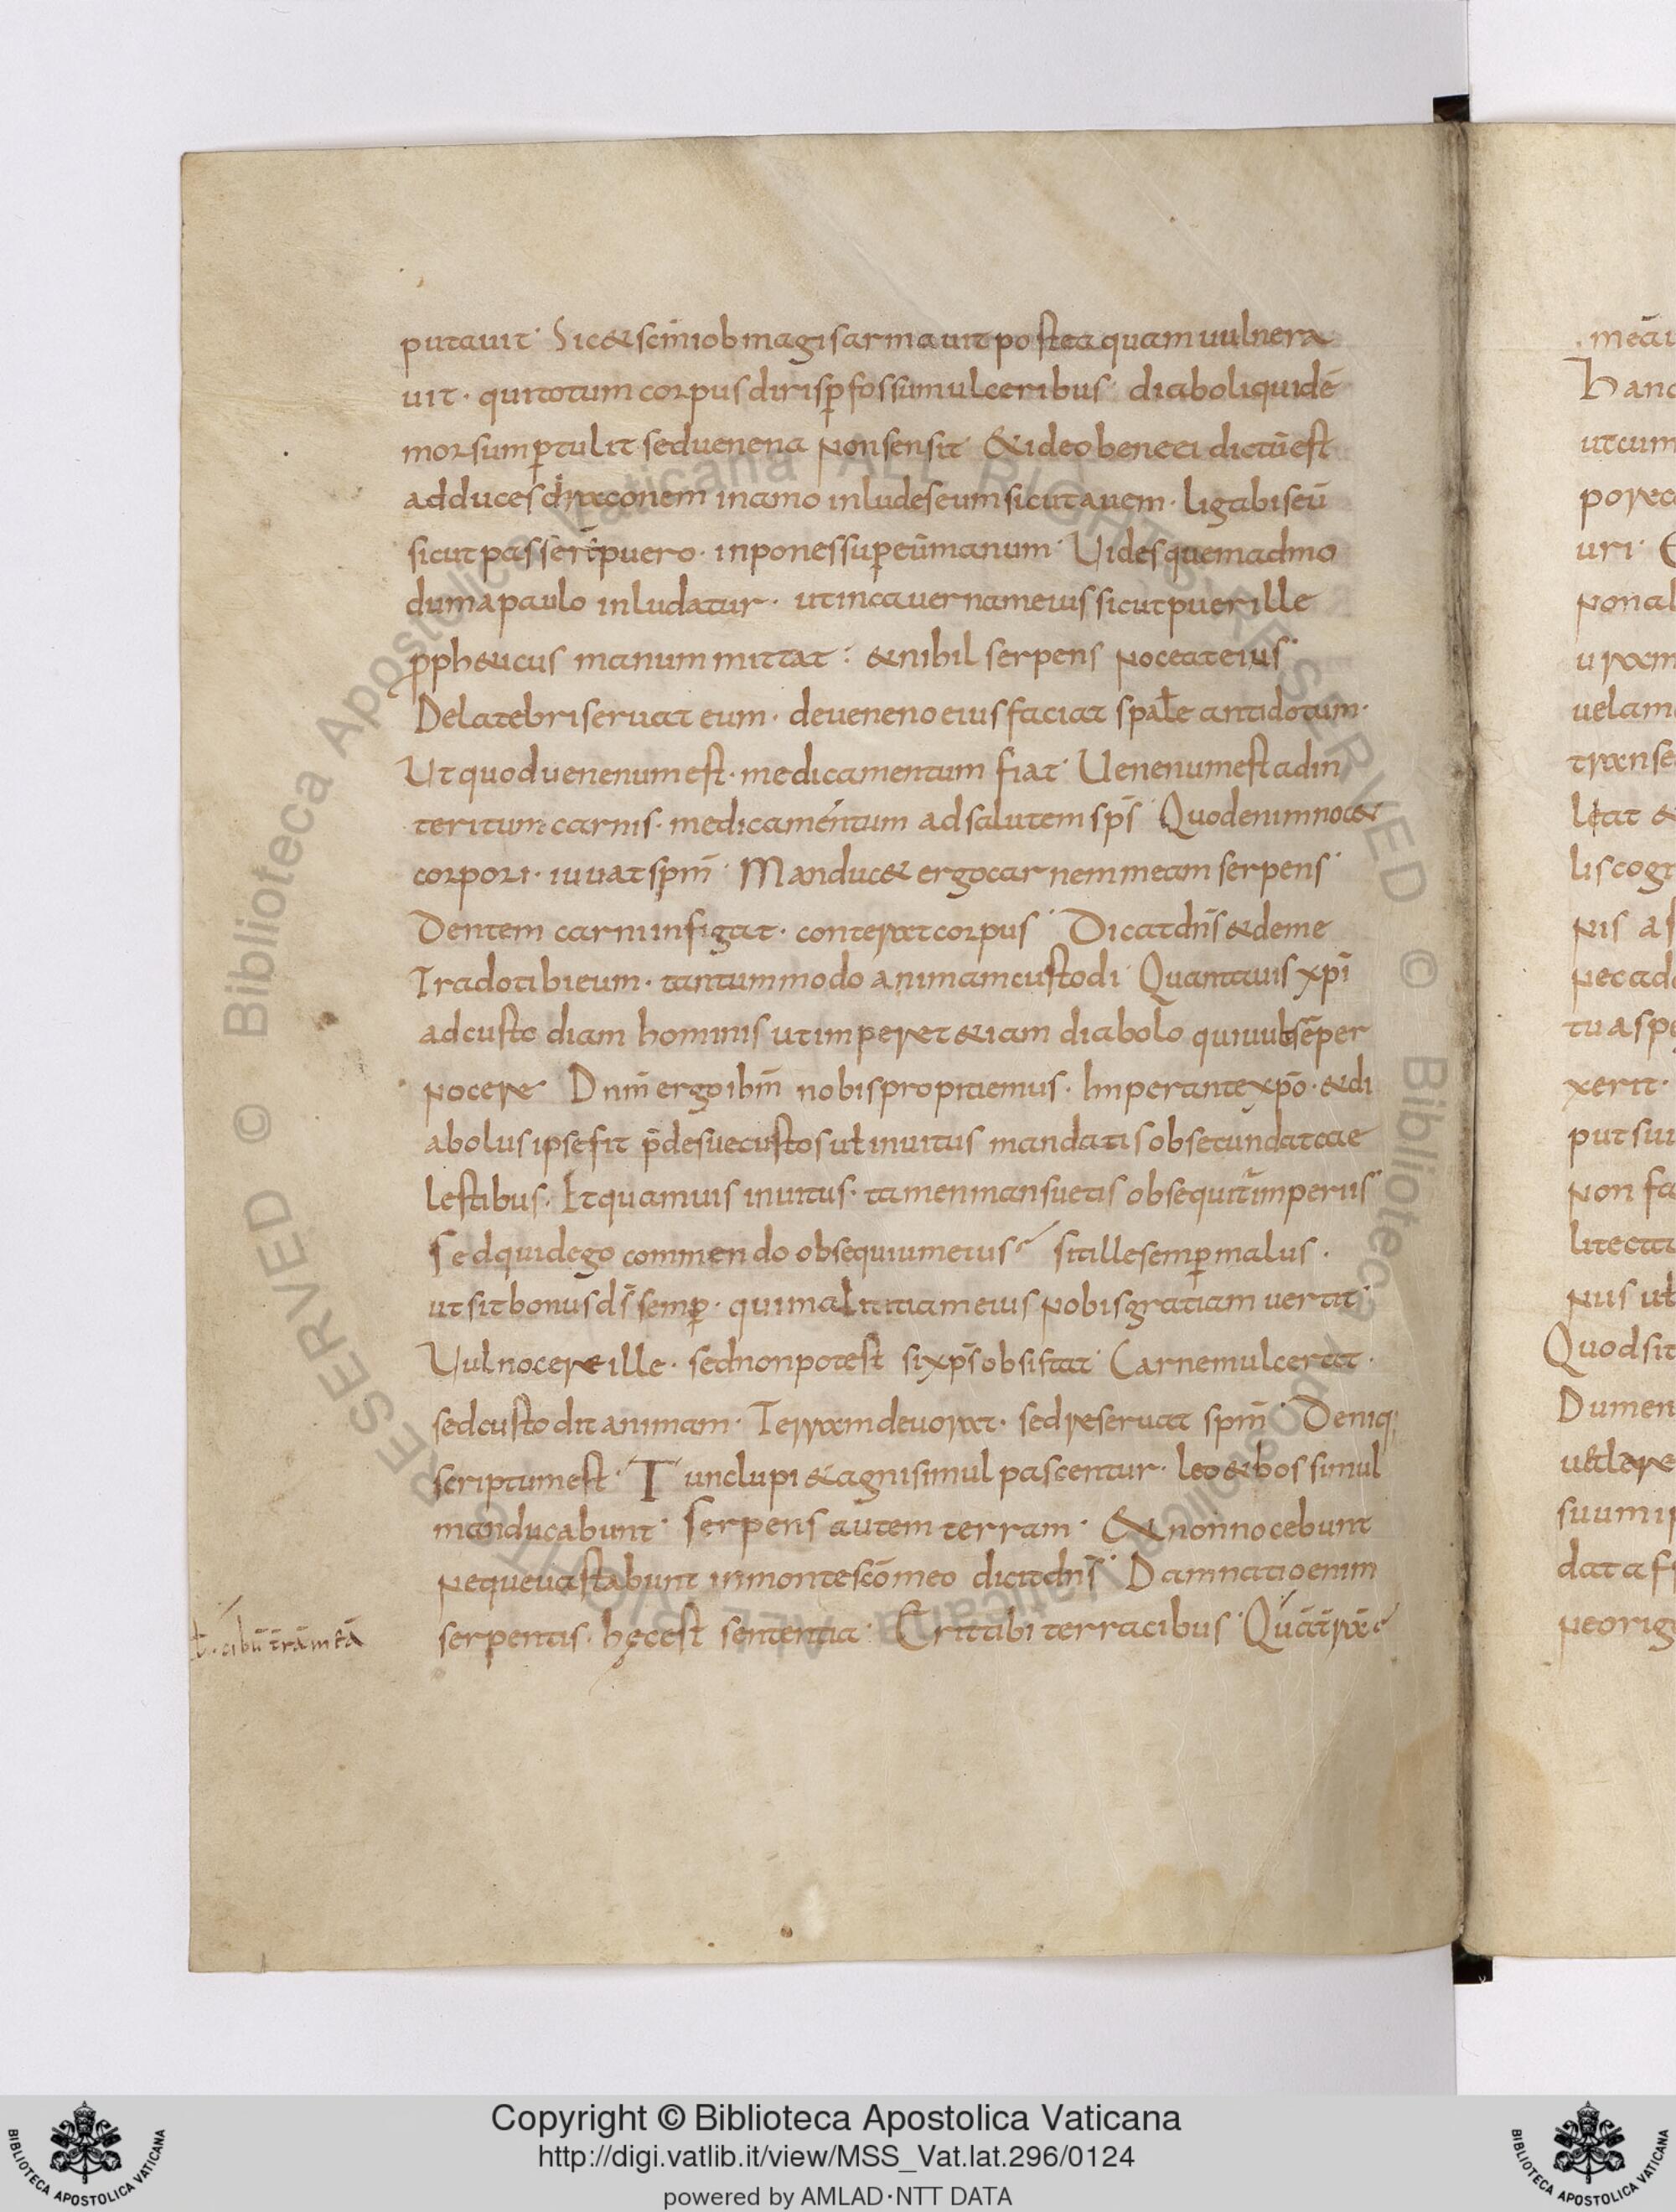 putauit· Sic & scm̄ iob magis armauit postea quam uulnera
uit· qui totum corpus diris p̱fossum ulceribus· diaboli quidē
morsum p̱tulit sed uenena non sensit· & ideo bene ei dictū est
adduces draconem in amo inludes eum sicut auem· ligabis eū
sicut passerē puero· inpones sup̱ eū manum· Uides quemadmo
dum a paulo inludatur· ut in cauernam eius sicut puer ille
ꝓph&icus manum mittat· & nihil serpens noceat eius·
De latebris eruat eum· de ueneno eius faciat spałe antidotum·
Ut quod uenenum est· medicamentum fiat· Uenenum est ad in
teritum carnis· medicamentum ad salutem sps̄· Quod enim noc&
corpori· iuuat spm̄· Manduc& ergo carnem meam serpens·
Dentem carni infigat· conterat corpus· Dicat dns̄ & de me
Trado tibi eum· tantummodo animam custodi· Quanta uis xpī
ad custodiam hominis ut imperet &iam diabolo qui uult sēper
nocere· Dnm̄ ergo ibm̄ nobis propitiemus· Imperante xpō· & di
abolus ipse fit p̄de suę custos ut inuitus mandatis obsecundat cae
lestibus· Et quamuis inuitus· tamen mansuetis obsequit̄ imperiis·
Sed quid ego commendo obsequium eius? sit ille semp̱ malus·
ut sit bonus ds̄ semp̱· qui malitiam eius nobis gratiam uertat·
Uul nocere ille· sed non potest si xps̄ obsistat· Carnem ulcerat·
sed custodit animam· Terram deuorat· sed reseruat spm̄· Deniq;
scriptum est· Tunc lupi & agni simul pascentur· leo & bos simul
manducabunt· Serpens autem terram· & non nocebunt
neque uastabunt in monte scō meo dicit dns̄· Damnatio enim
serpentis· hęc est sententia· Erit tibi terra cibus· Quā terrā?
ł· cibū trām eā
Copyright © Biblioteca Apostolica Vaticana
http://digi.vatlib.it/view/MSS_Vat.lat.296/0124
powered by AMLAD·NTT DATA